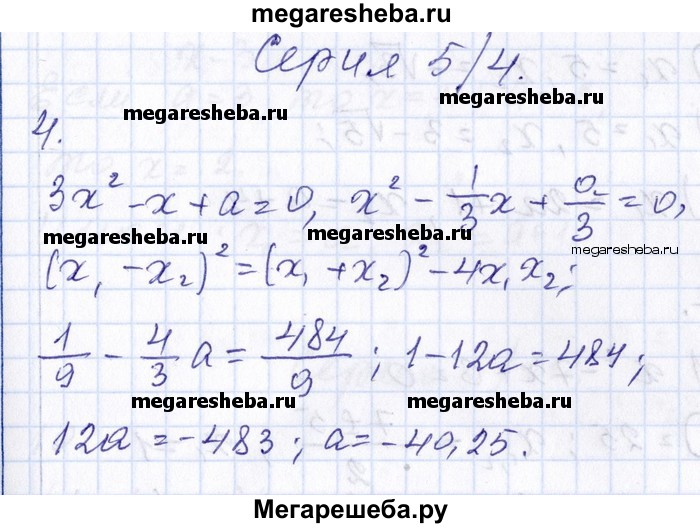 megaresheba.ru
Серия 5/4.
megaresheba.ru megaresheba.ru
4.
3x² - x + a = 0, x² - 1/3 x + a/3 = 0,
megaresheba.ru megaresheba.ru megaresheba.ru
(x₁ - x₂)² = (x₁ + x₂)² - 4x₁x₂;
1/9 - 4/3 a = 484/9 ; 1 - 12a = 484;
megaresheba.ru megaresheba.ru
12a = -483 ; a = -40,25.
Мегарешеба.ру